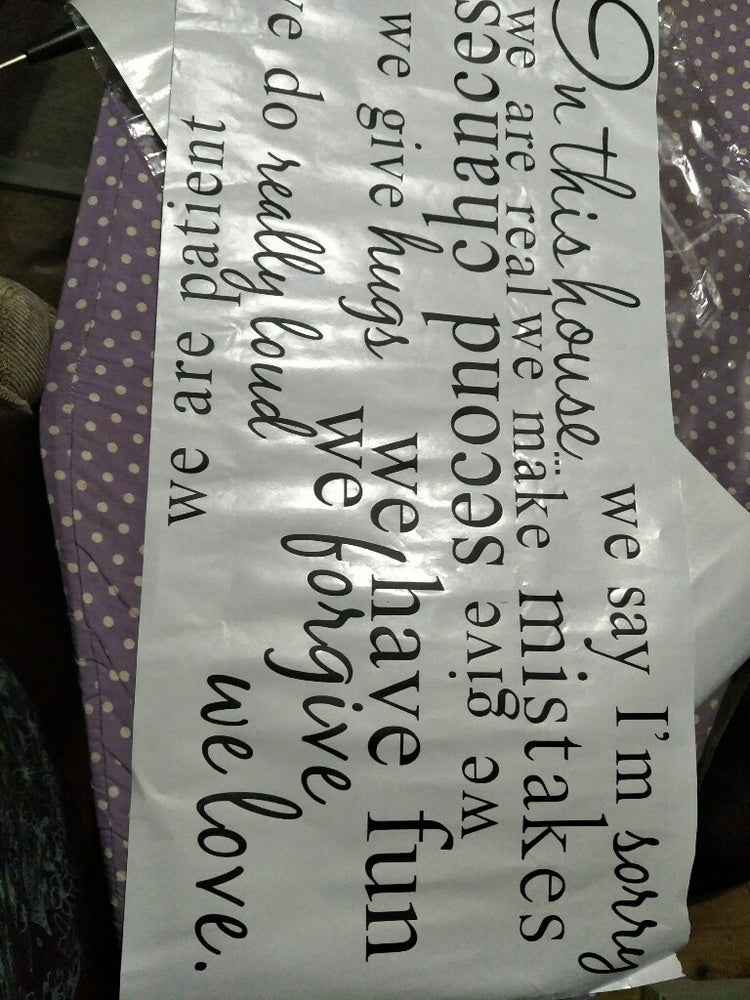 In this house...
we say I'm sorry
we are real we make mistakes
we give second chances
we give hugs
we have fun
we do really loud
we forgive
we are patient
we love.